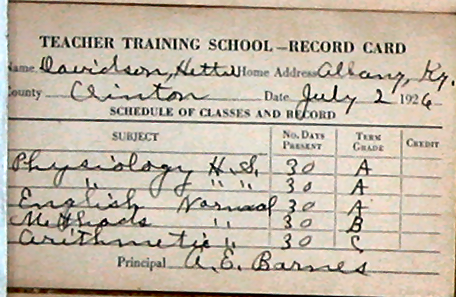 TEACHER TRAINING SCHOOL—RECORD CARD
Name Davidson, Hettie Home Address Albany, Ky.
County Clinton Date July 2 1926
SCHEDULE OF CLASSES AND RECORD
SUBJECT No. DAYS PRESENT TERM GRADE CREDIT
Physiology H.S. 30 A
" " " 30 A
English Normal 30 A
Methods " 30 B
Arithmetic " 30 C
Principal A. E. Barnes